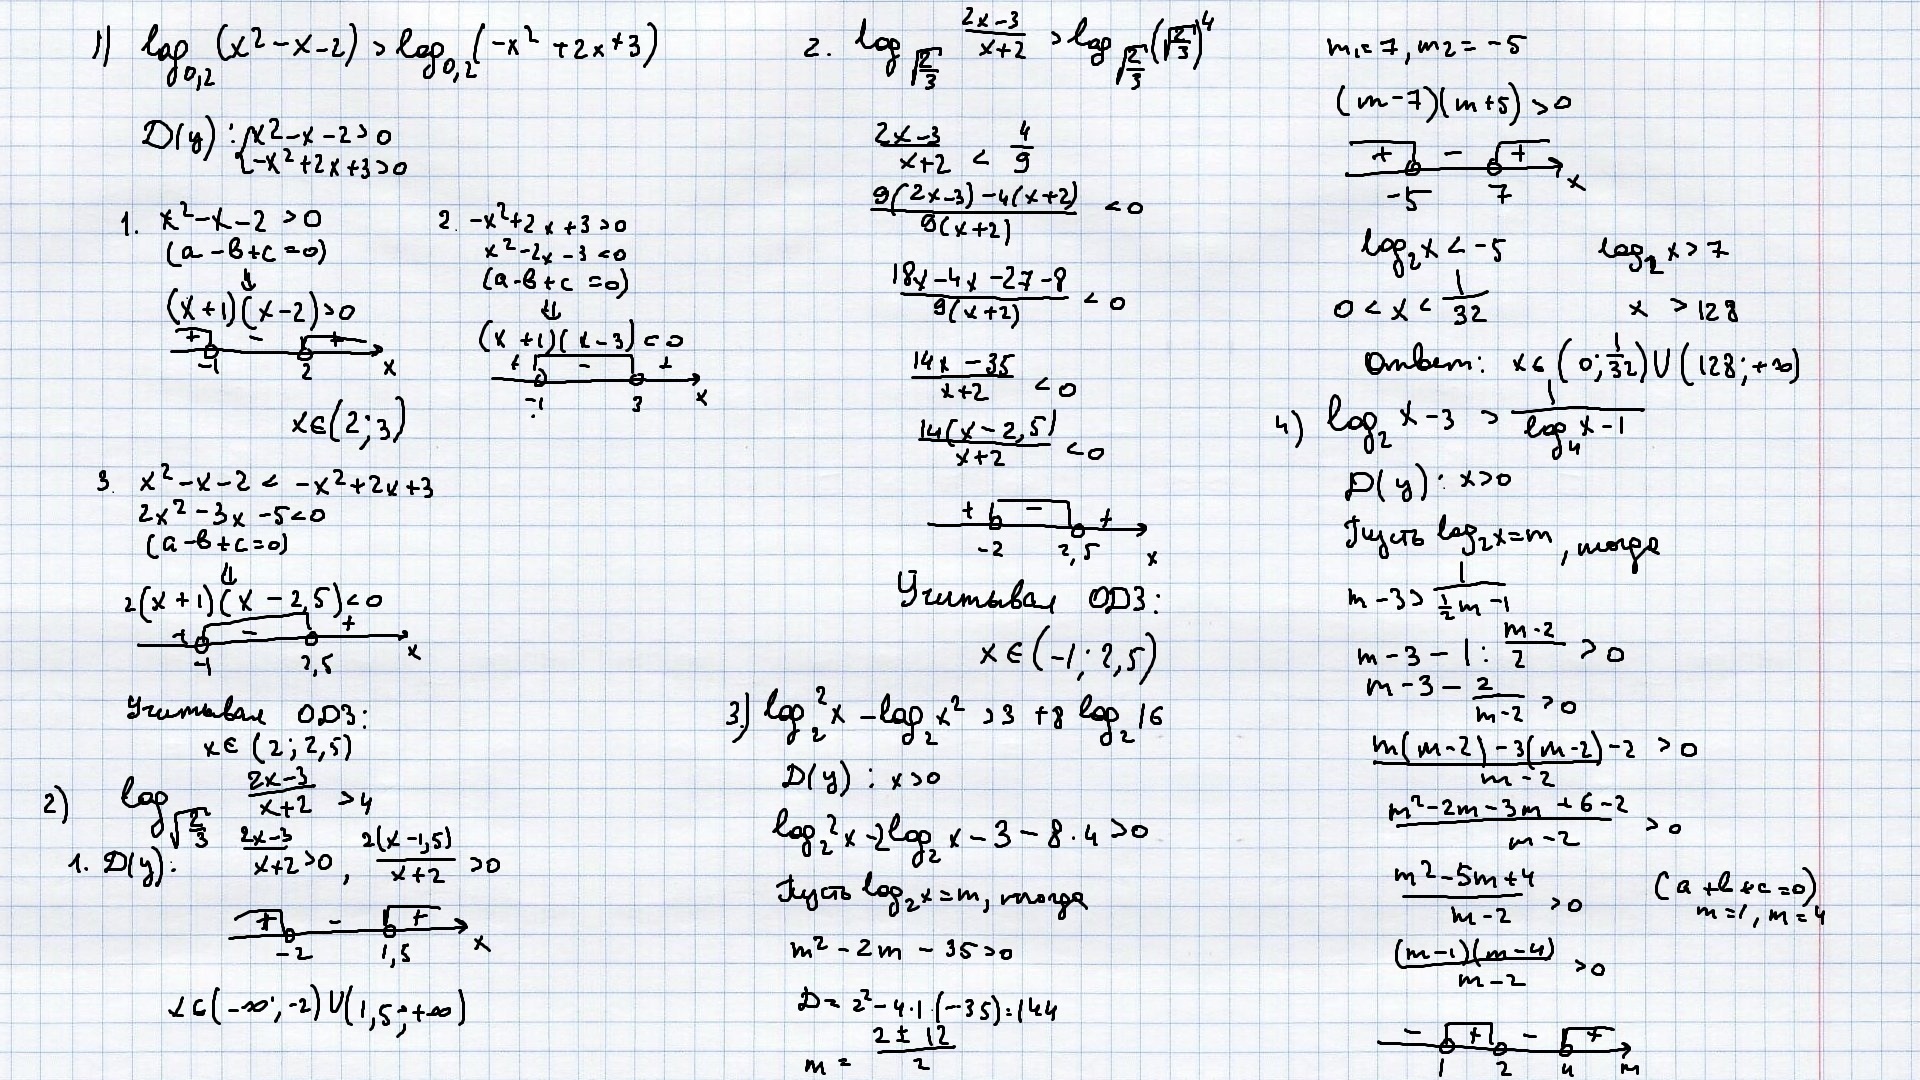 1) log₀,₂(x²-x-2) > log₀,₂(-x²+2x+3)
D(y): {x²-x-2>0
{-x²+2x+3>0
1. x²-x-2>0
(a-b+c=0)
⇓
(x+1)(x-2)>0
+ - +
-1 2 x
2. -x²+2x+3>0
x²-2x-3<0
(a-b+c=0)
⇓
(x+1)(x-3)<0
+ - +
-1 3 x
x∈(2;3)
3. x²-x-2 < -x²+2x+3
2x²-3x-5<0
(a-b+c=0)
⇓
2(x+1)(x-2,5)<0
+ - +
-1 2,5 x
Учитывая ОДЗ:
x∈(2;2,5)
2) log_√(2/3) (2x-3)/(x+2) >4
1. D(y): (2x-3)/(x+2)>0, 2(x-1,5)/(x+2)>0
+ - +
-2 1,5 x
x∈(-∞;-2)∪(1,5;+∞)
2. log_√(2/3) (2x-3)/(x+2) > log_√(2/3) (√(2/3))⁴
(2x-3)/(x+2) < 4/9
(9(2x-3)-4(x+2))/(9(x+2)) <0
(18x-4x-27-8)/(9(x+2)) <0
(14x-35)/(x+2) <0
14(x-2,5)/(x+2) <0
+ - +
-2 2,5 x
Учитывая ОДЗ:
x∈(-1;2,5)
3) log₂²x - log₂x² >3+8 log₂16
D(y): x>0
log₂²x-2log₂x-3-8·4>0
Пусть log₂x=m, тогда
m²-2m-35>0
D=2²-4·1·(-35)=144
m = (2±12)/2
m₁=7, m₂=-5
(m-7)(m+5)>0
+ - +
-5 7 x
log₂x<-5 log₂x>7
0<x<1/32 x>128
Ответ: x∈(0;1/32)∪(128;+∞)
4) log₂x-3 > 1/(log₄x-1)
D(y): x>0
Пусть log₂x=m, тогда
m-3> 1/(½m-1)
m-3-1: (m-2)/2 >0
m-3- 2/(m-2) >0
(m(m-2)-3(m-2)-2)/(m-2) >0
(m²-2m-3m+6-2)/(m-2) >0
(m²-5m+4)/(m-2) >0 (a+b+c=0)
m=1, m=4
(m-1)(m-4)/(m-2) >0
- + - +
1 2 4 m